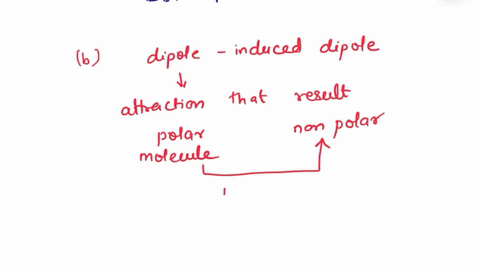 (b) dipole - induced dipole
attraction that result
polar non polar
molecule